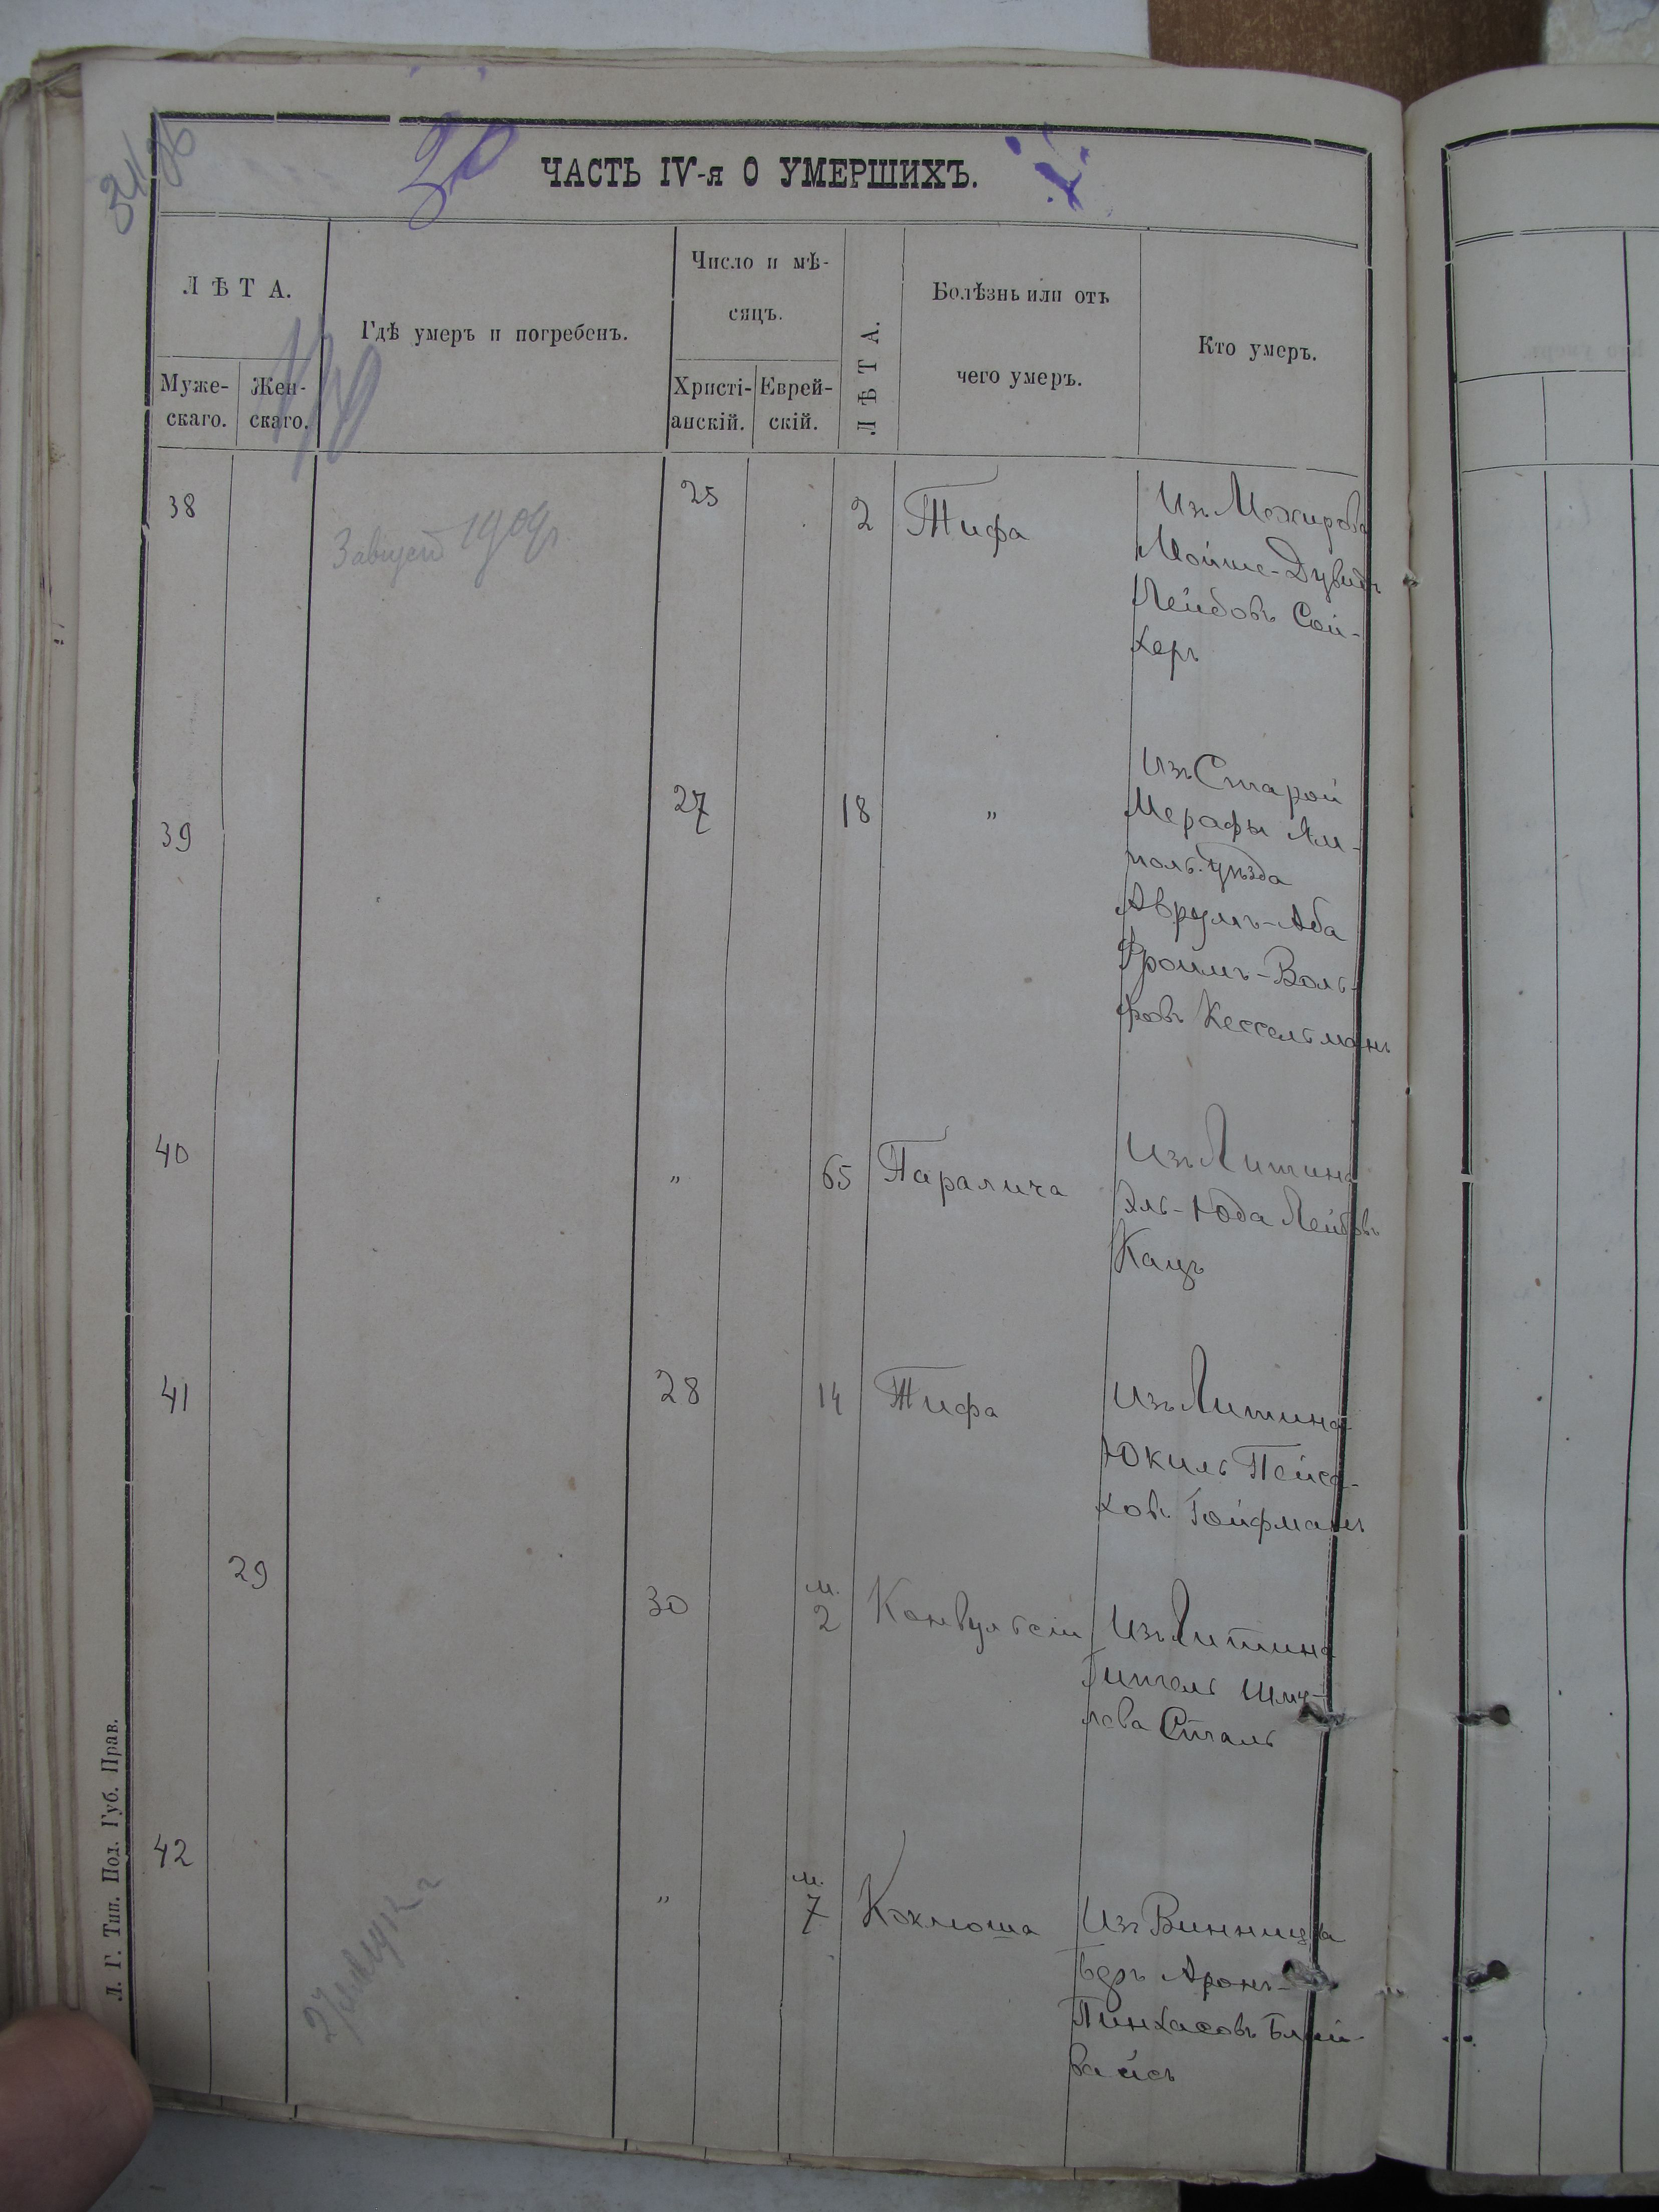 34/36
30
ЧАСТЬ IV-я О УМЕРШИХЪ.
ЛѢТА.
Муже-
скаго.
Жен-
скаго.
Гдѣ умеръ и погребенъ.
Число и мѣ-
сяцъ.
Христі-
анскій.
Еврей-
скій.
ЛѢТА.
Болѣзнь или отъ
чего умеръ.
Кто умеръ.
38
25
2
Тифа
Изъ Межирова
Мойше-Дувидъ
Лейбовъ Сой-
херъ
39
27
18
"
Изъ Старой
Мерафы Ям-
поль. уѣзда
Аврумъ-Аба
Фроимъ-Воль-
фовъ Кессельманъ
40
"
65
Паралича
Изъ Литина
Эль-Юда Лейбовъ
Кацъ
41
28
14
Тифа
Изъ Литина
Юкиль Пейса-
ховъ Гойфманъ
29
30
м.
2
Конвульсіи
Изъ Литина
Гитель Шму-
лева Сталь
42
"
м.
7
Коклюша
Изъ Винницы
Беръ Аронъ-
Пинхасовъ Блай-
вайсъ
Л. Г. Тип. Под. Губ. Прав.